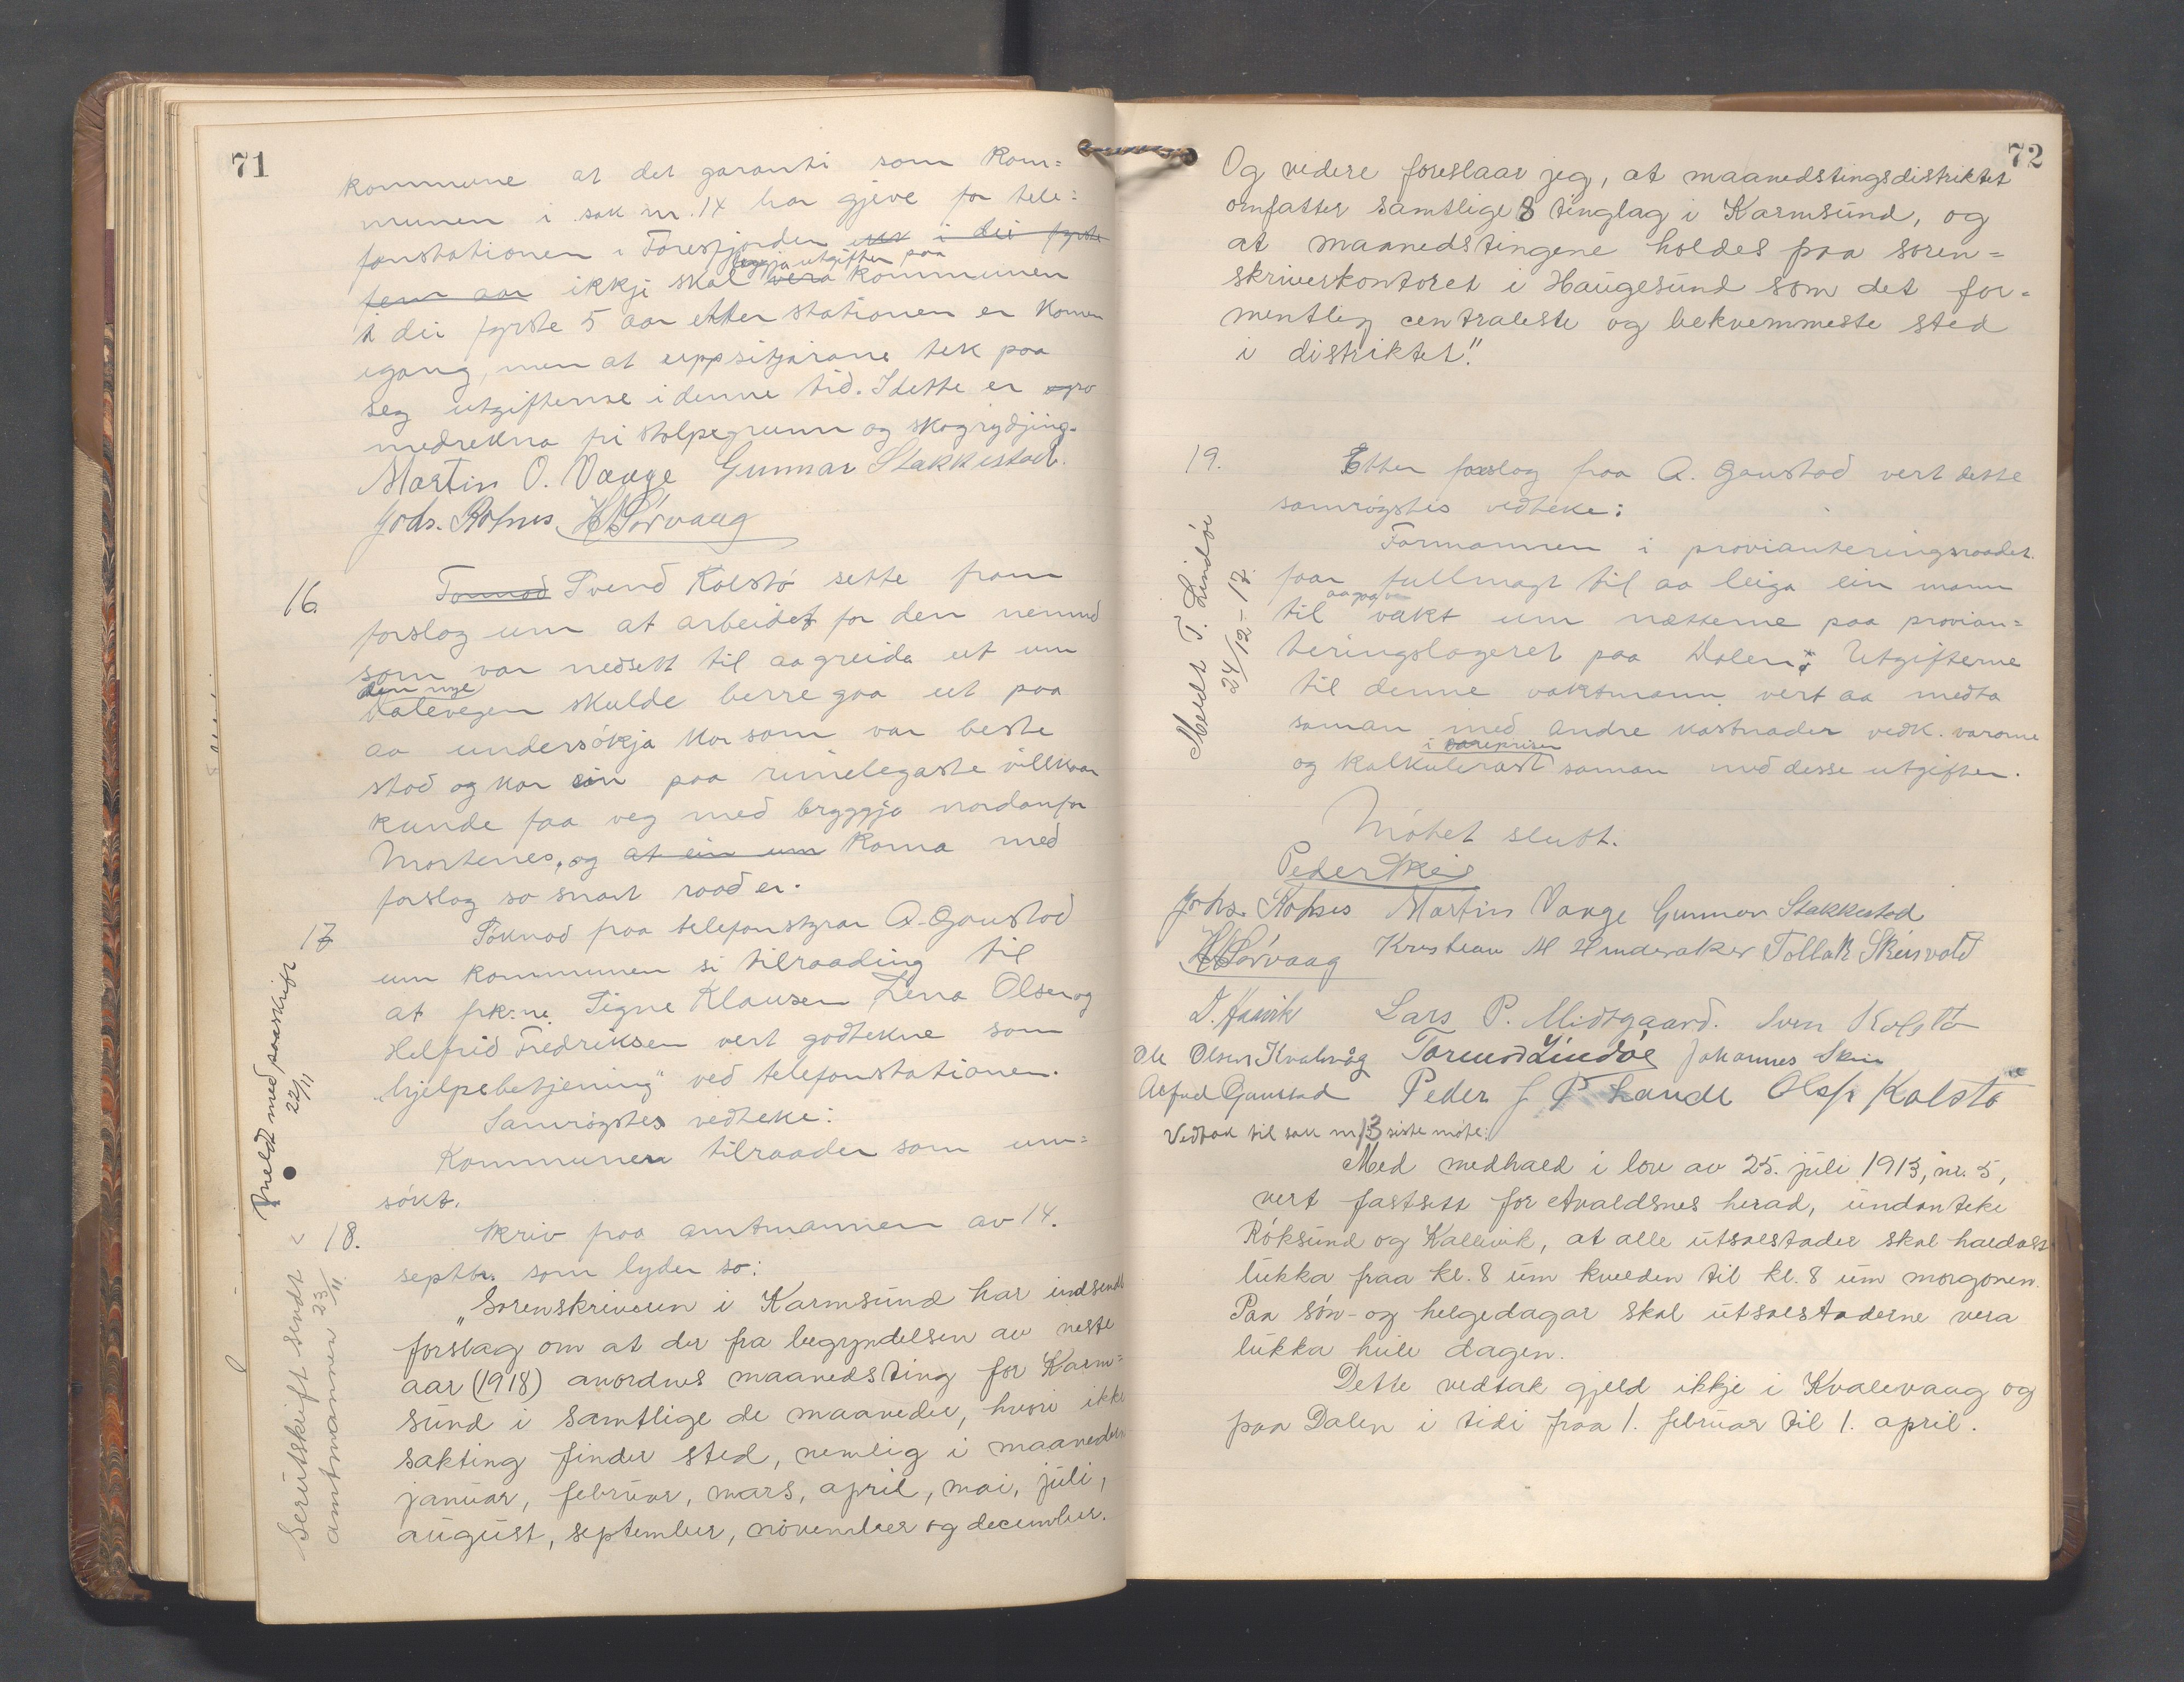 71
kommune at det garanti som kom=
munen i sak nr. 14 har gjeve for tele=
fonstationen i Førresfjorden i dei fyrste
fem aar ikkje skal vera leggja utgifter paa kommunen
i dei fyrste 5 aar etter stationen er komen
igang, men at uppsitjarane tek paa
seg utgifterne i denne tid. I dette er
medrekna fri stolpegrunn og skogrydjing.
Martin O. Vaage Gunnar Stakkestad.
Johs. Røksnes H Sørvaag
16. Tormod Svend Kolstø sette fram
forslag um at arbeidet for den nemnd
som var nedsett til aa greida ut um
den nye
Dalevegen skulde berre gaa ut paa
aa undersøkja kor som var beste
stad og kor ein paa rimelegaste villkaar
kunde faa veg med bryggja nordanfor
Mortenes, og at ein um koma med
forslag so snart raad er.
17 Søknad fraa telefonstyrar A. Gaustad
um kommunen si tilraading til
at frk.ne. Signe Klausen Lena Olsen og
Helfrid Fredriksen vert godtekne som
"hjelpebetjening" ved telefonstationen.
Samrøystes vedteke:
Kommunen tilraader som um=
søkt.
Meldt med paaskrift
22/11
18. Skriv fraa amtmannen av 14.
septbr. som lyder so:
"Sorenskriveren i Karmsund har indsendt
forslag om at der fra begyndelsen av neste
aar (1918) anordnes maanedsting for Karm=
sund i samtlige de maaneder, hvori ikke
sakting finder sted, nemlig i maaneden
januar, februar, mars, april, mai, juli,
august, september, november og december.
Serutskrift sendt
amtmannen 23/11
72
Og videre foreslaar jeg, at maanedstingsdistriktet
omfatter samtlige 8 tinglag i Karmsund, og
at maanedstingene holdes paa soren=
skriverkontoret i Haugesund som det for=
mentlig centraleste og bekvemmeste sted
i distriktet."
19. Etter forslag fraa A. Gaustad vert dette
samrøystes vedteke:
Formannen i provianteringsraadet
faar fullmagt til aa leiga ein mann
til vakt um nætterne paa provian=
teringslageret paa Dalen. Utgifterne
til denne vaktmann vert aa medta
saman med andre kostnader vedk. varorne
i vareprisen
og kalkulerast saman med desse utgifter.
Meldt T. Lindøe
24/12-17.
Møtet slutt.
Peder Skeie
Johs. Røksnes Martin Vaage Gunnar Stakkestad
H Sørvaag Kristian M Hinderaker Tollak Skeisvold
D. Høvik Lars P. Midtgaard. Sven Kolstø
Ole Olsen Kvalavåg Tormod Lindøe Johannes Skeie
Alfred Gaustad Peder J P Lande Olaf Kolstø
Vedtak til sak nr 13 siste møte:
Med medhald i lov av 25. juli 1913, nr. 5,
vert fastsett for Avaldsnes herad, undanteke
Røksund og Kallevik, at alle utsalstader skal haldast
lukka fraa kl. 8 um kvelden til kl. 8 um morgonen.
Paa søn- og helgedagar skal utsalstaderne vera
lukka heile dagen.
Dette vedtak gjeld ikkje i Kvalevaag og
paa Dalen i tidi fraa 1. februar til 1. april.